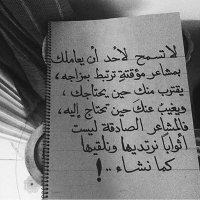 لا تسمح لأحد أن يعاملك
بمشاعر مؤقتةٍ ترتبط بمزاجه ،
يقترب منك حين يحتاجك ،
ويغيبُ عنكَ حين تحتاج إليه ،
فالمشاعر الصادقة ليست
أثوابًا نرتديها ونلقيها
كما نشاء ..!